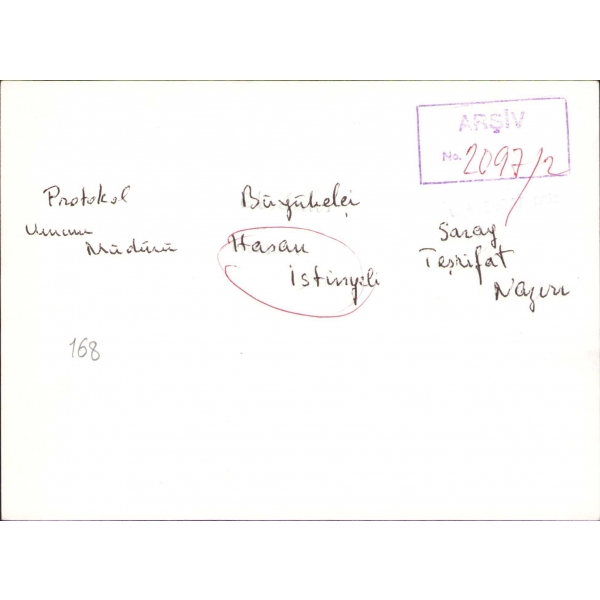 ARŞİV
No. 2097/2
Protokol
Umum
Müdürü
Büyükelçi
Hasan
İstinyeli
Saray
Teşrifat
Nazırı
168